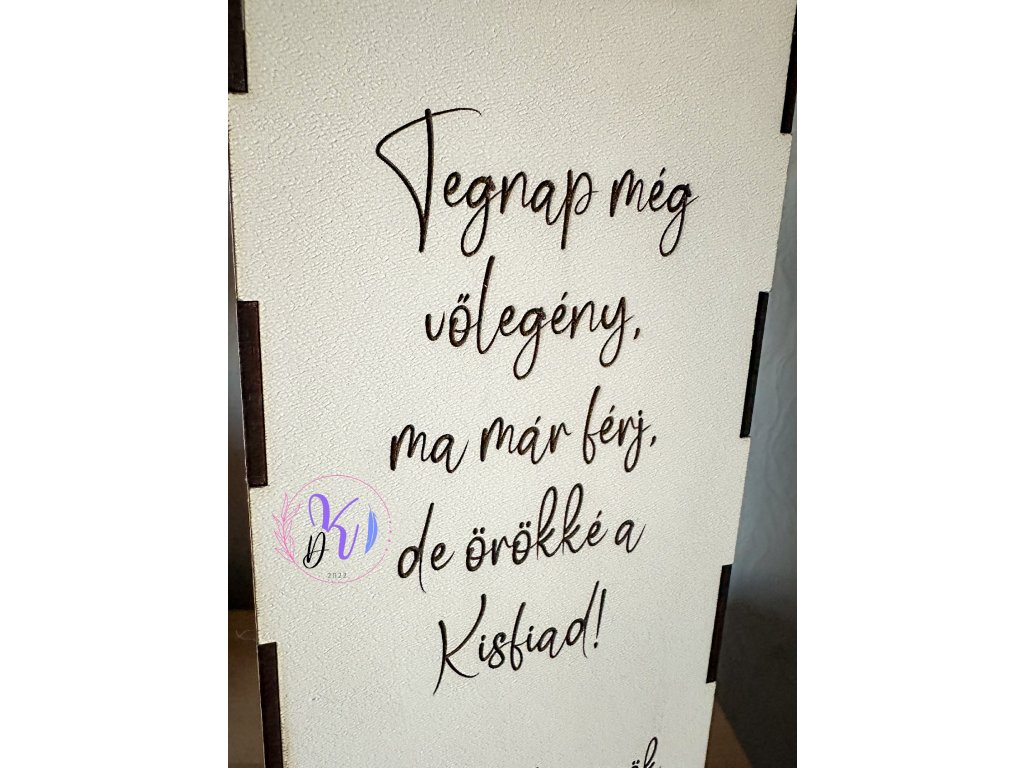 Tegnap még
vőlegény,
ma már férj,
de örökké a
Kisfiad!
DK
2022